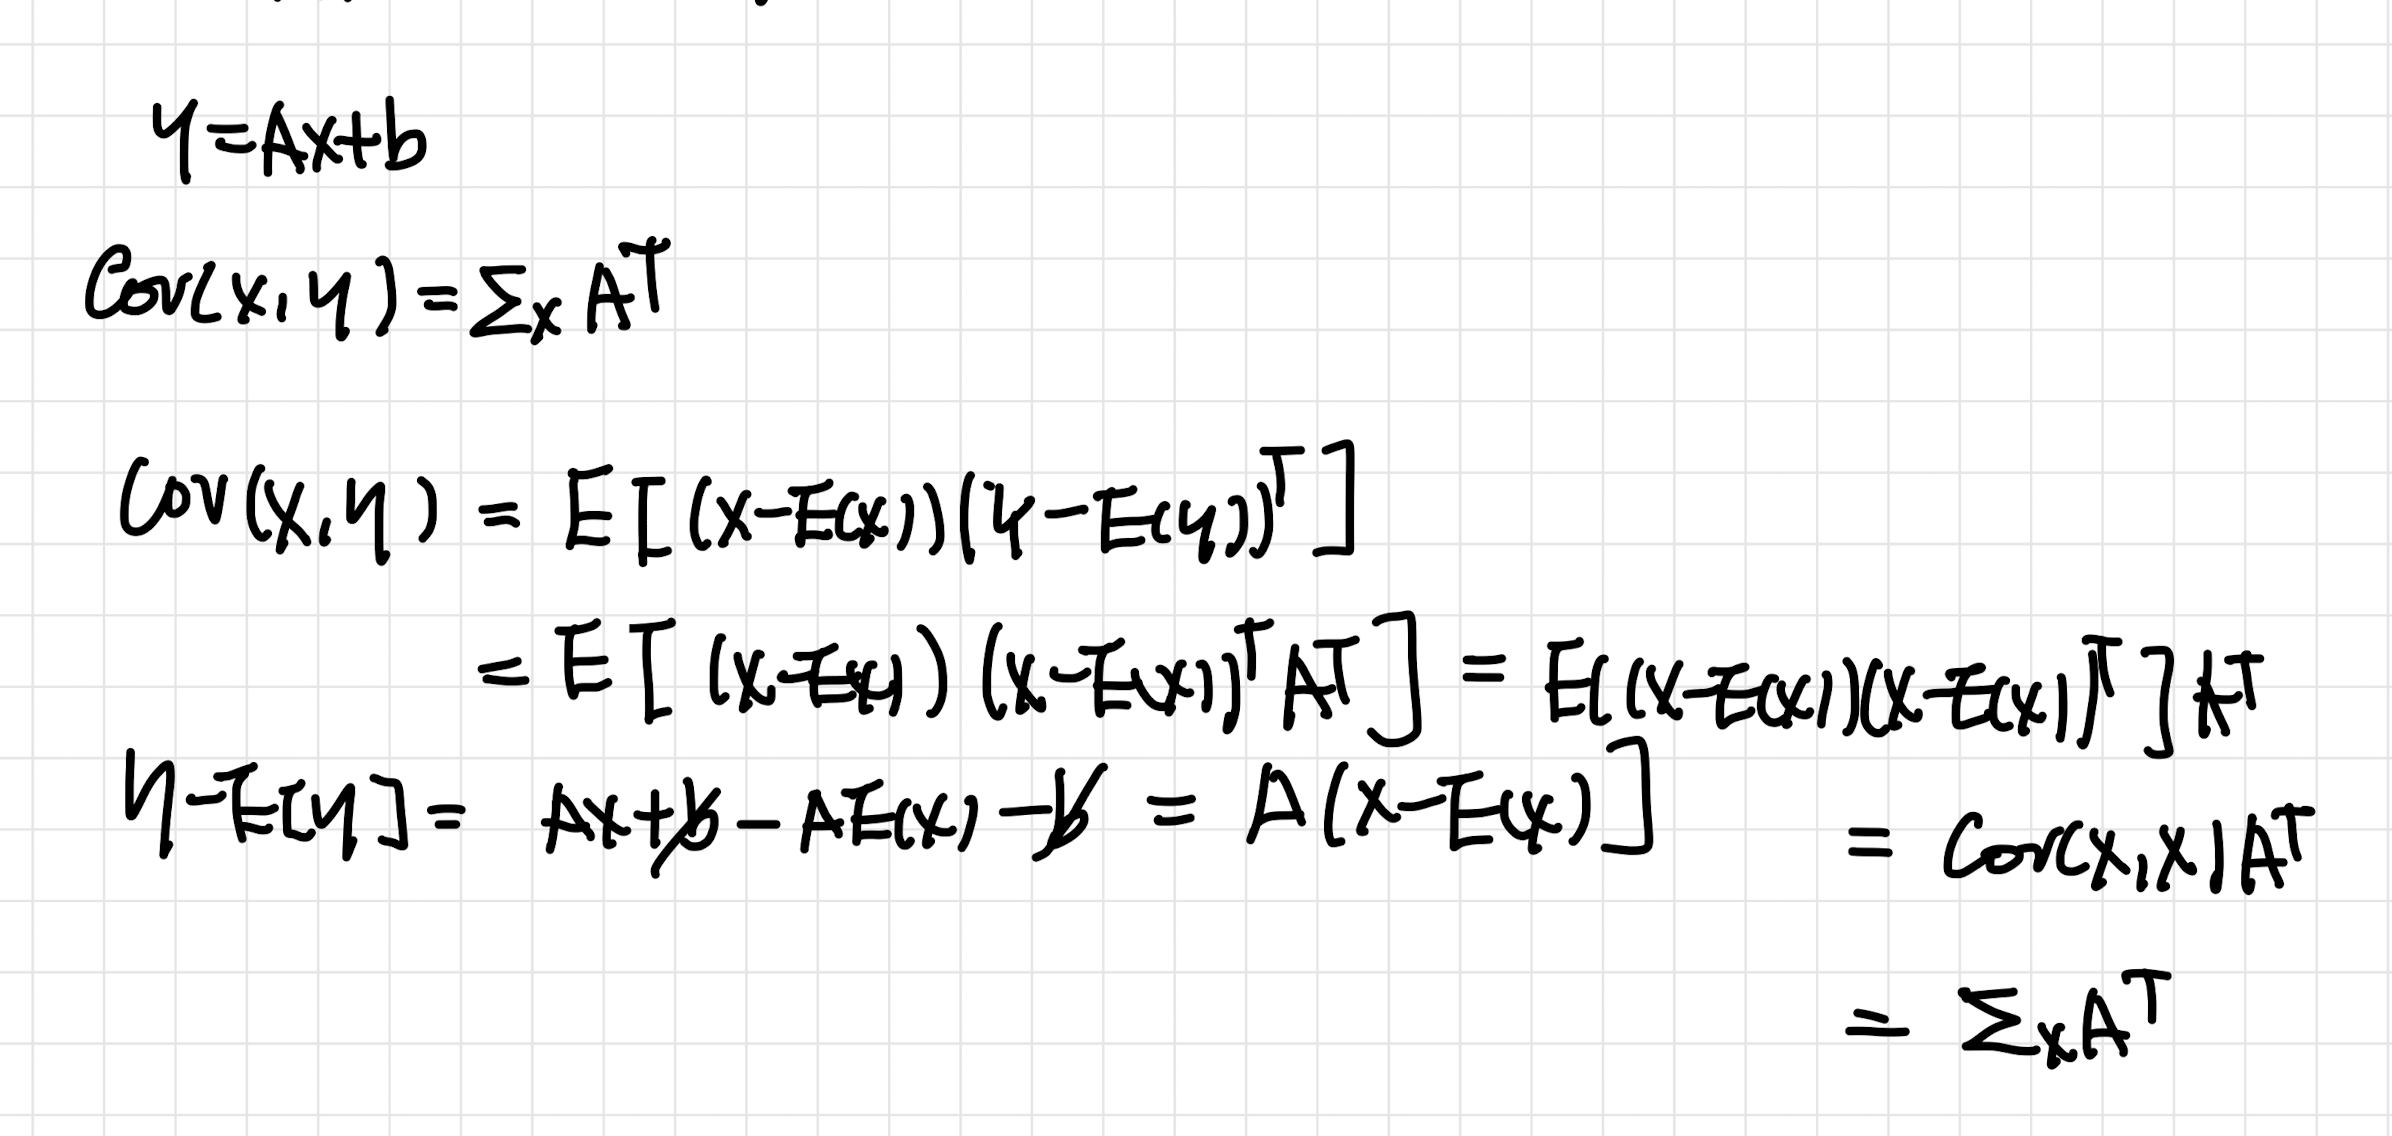 y=Ax+b
Cov(x,y)=Σₓ Aᵀ
Cov(x,y) = E[(x-E(x))(y-E(y))ᵀ]
= E[(x-E(x))(x-E(x))ᵀAᵀ] = E[(x-E(x))(x-E(x))ᵀ]Aᵀ
y-E[y]= Ax+b-AE(x)-b = A(x-E(x)]
= Cov(x,x)Aᵀ
= ΣₓAᵀ